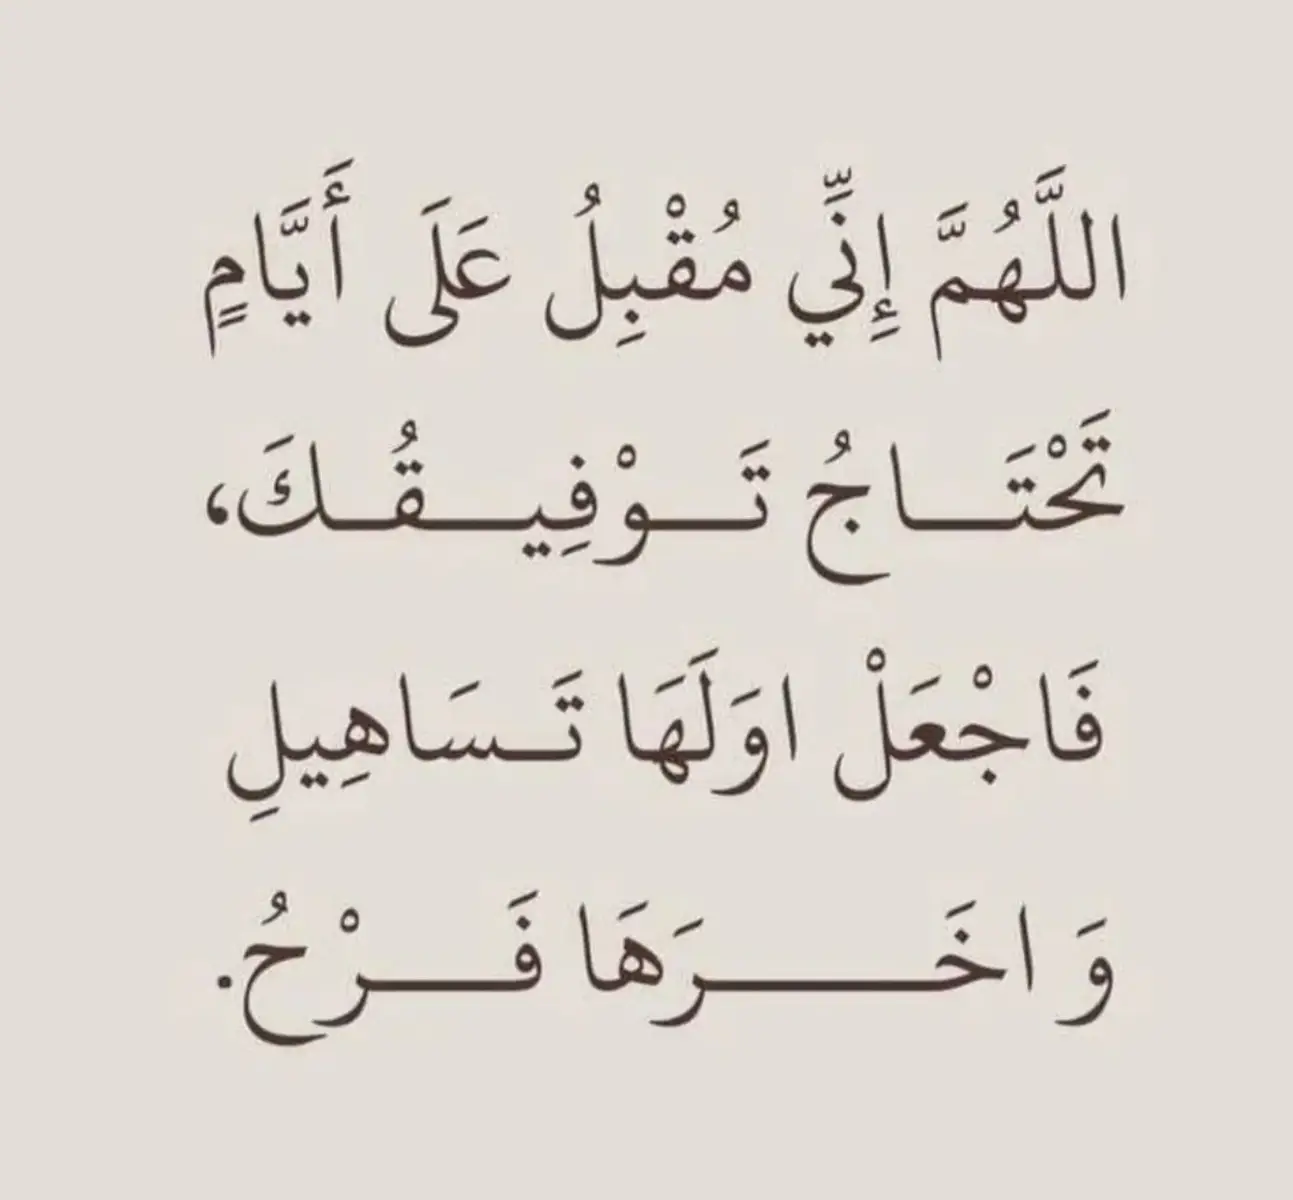 اللَّهُمَّ إِنِّي مُقْبِلُ عَلَى أَيَّامٍ
تَحْتَـاجُ تَـوْفِيـقُـكَ،
فَاجْعَلْ اوَلَهَا تَـسَاهِيلِ
وَ اخَـرَهَا فَـرْحُ.